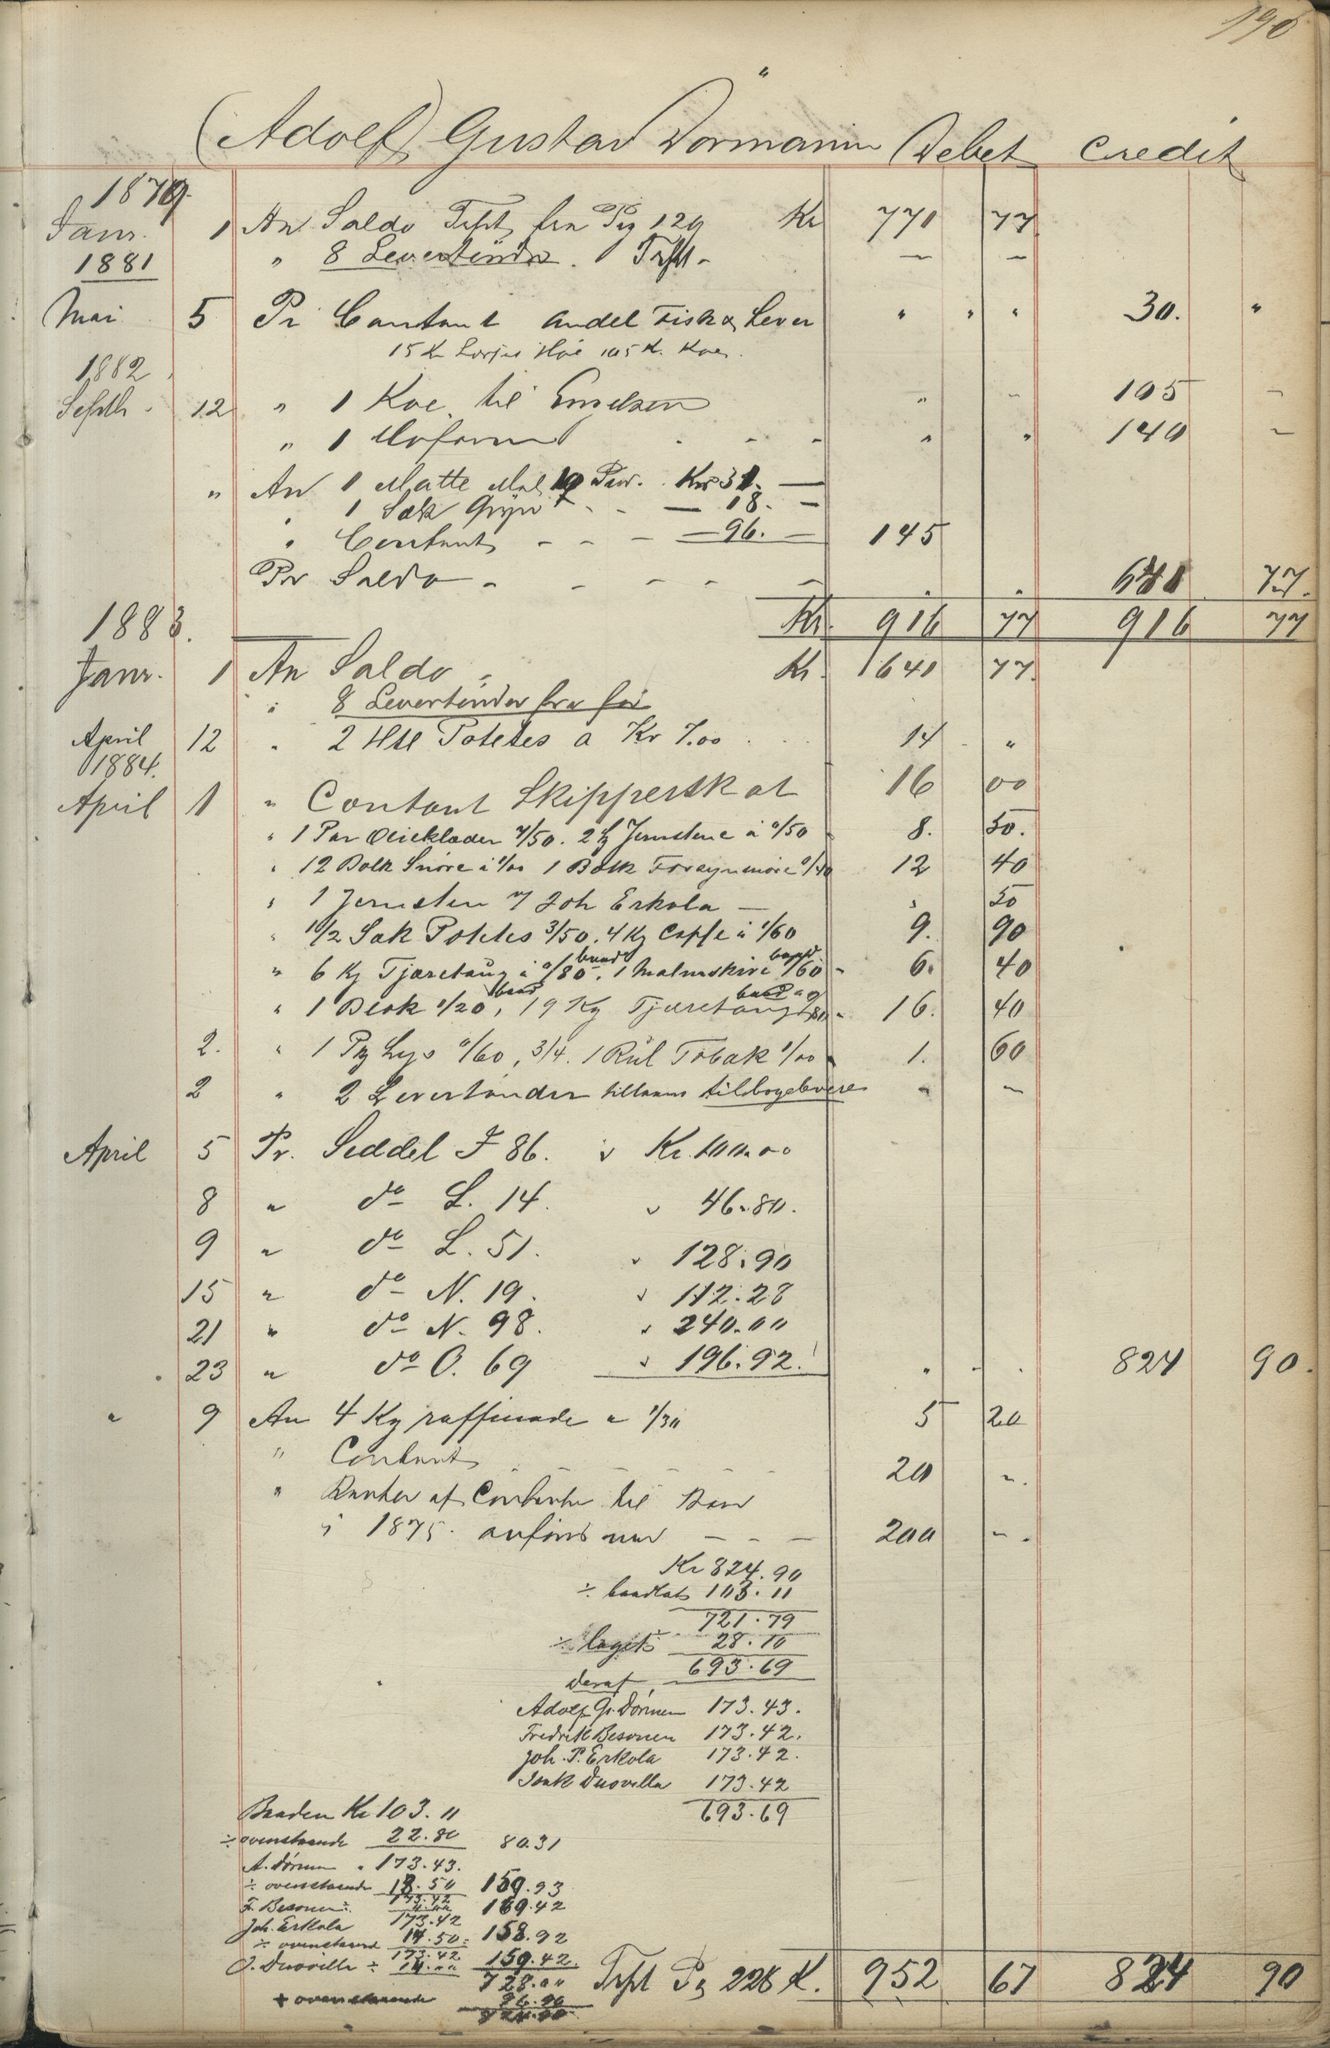 196
(Adolf) Gustav Dörmann Debet Credit
1879
Janr. 1 An Saldo Trpt fra Pg 129 Kr 771 77
1881 " 8 Levertönder. Trpt -
Mai 5 Pr Contant andel Fisk & Lever " " " 30. "
15 Kr Höe 105 Kr. Koe
1882
Septb. 12 " 1 Koe til Engelsen " - 105 -
" 1 - - - " " 140 -
" An 1 Matte Mel Kr 31. -
" 1 Sæk Gryn - - - 18. -
" Contant - - - 96. - 145
Pr Saldo - - - - - . . 641 77.
Kr. 916 77 916 77
1883.
Janr. 1 An Saldo - Kr. 641 77.
" 8 Levertönder fra för
April 12 " 2 Htl Potetes a Kr 7.00 14 "
1884.
April 1 " Contant Skipperskat 16 00
" 1 Par Olieklæder 7/50. 2 Jernstene à 0/50 8. 50.
" 12 Bolk Snöre à 1/00 1 Bolk 0/40 12 40
" 1 Jernsten Joh Erkola - " 50
" 1 1/2 Sæk Potetes 3/50. 4 Kg Caffe à 1/60 9. 90
" 6 Kg Tjæretaug à 0/80 baad. 1 Malmskive 1/60 baad - 6. 40
" 1 Blok 1/20 baad, 19 Kg Tjæretaug baad a 0/80 - 16. 40
2. " 1 Pg Lys 0/60, 3/4. 1 Rul Tobak 1/00 - 1. 60
2 " 2 Levertönder tillaans tilbageleveres - -
April 5 Pr. Seddel F 86. " Kr. 100.00
8 " do L. 14. " 46.80.
9 " do L. 51. " 128.90
15 " do N. 19. " 112.28
21 " do N. 98. " 240.00
23 " do O. 69 " 196.92. " - . 824 90.
" 9 An 4 Kg raffinade a 1/30 5 20
" Contant - - - - - 20 -.
" Renter af Contanter til Baad
i 1875. anföres nu - - - 200 -.
Kr 824.90
÷ baadlot 103.11
721.79
÷ laget 28.10
693.69
deraf
Adolf G. Dörmen 173.43.
Fredrik Besonen 173.42.
Joh. P. Erkola 173.42.
Isak Duovilla 173.42
693.69
Baaden Kr 103.11
÷ ovenstaaende 22.80 80.31
A. Dörmen " 173.43.
÷ ovenstaaende 13.50 159.93
F. Besonen ÷ 173.42 169.42
Joh. Erkola 173.42
÷ ovenstaaend 14.50 = 158.92
I. Duovilla ÷ 173.42 14.00 159.42
728.00
+ ovenstaaende 96.90
824.90
Trpt Pg 226 K. 952 67 824 90